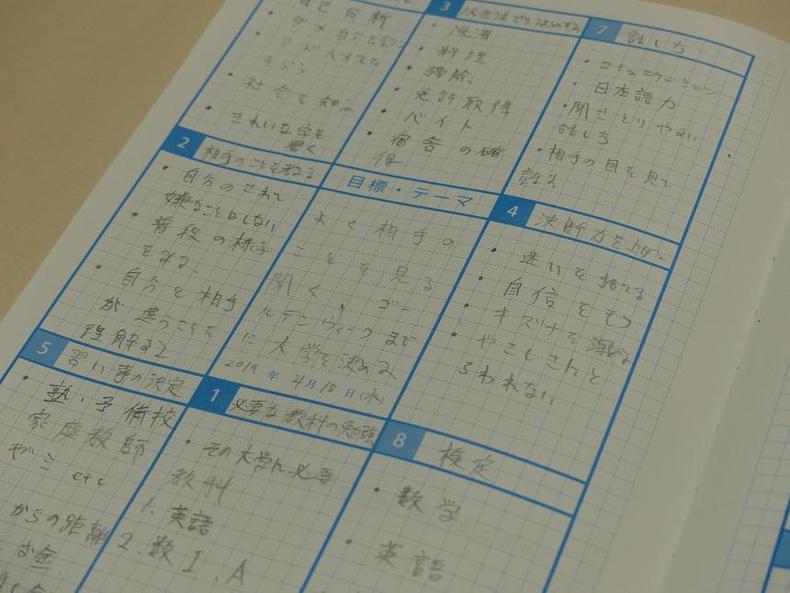 自己分析
ダメ自分を
アドバイスを
もらう
・社会を知る
・きれいな字を
書く
3
・洗濯
・料理
・掃除
・免許取得
・バイト
・宿舎の確
保
7 話し方
・コミュニケーション
・日本語力
・聞きとりやすい
話し方
・相手の目を見て
話す
2 相手のことを考える
・自分のされて
嫌なことはしない
・普段の様子
をみる
・自分と相手
が違うことを
理解する
目標・テーマ
よく相手の
ことを見る
聞く、ゴー
ルデンウィークまで
に大学を決める
2019年4月18日(木)
4 決断力を上げる
・迷いを捨てる
・自信をもつ
・キズナを深める
・やさしさにと
らわれない
5 習い事の決定
・塾、予備校
家庭教師
ゼミ etc
からの距離
お金
1 必要な教科の勉強
・その大学に必要
教科
1. 英語
2. 数I、A
8 検定
・数学
・英語